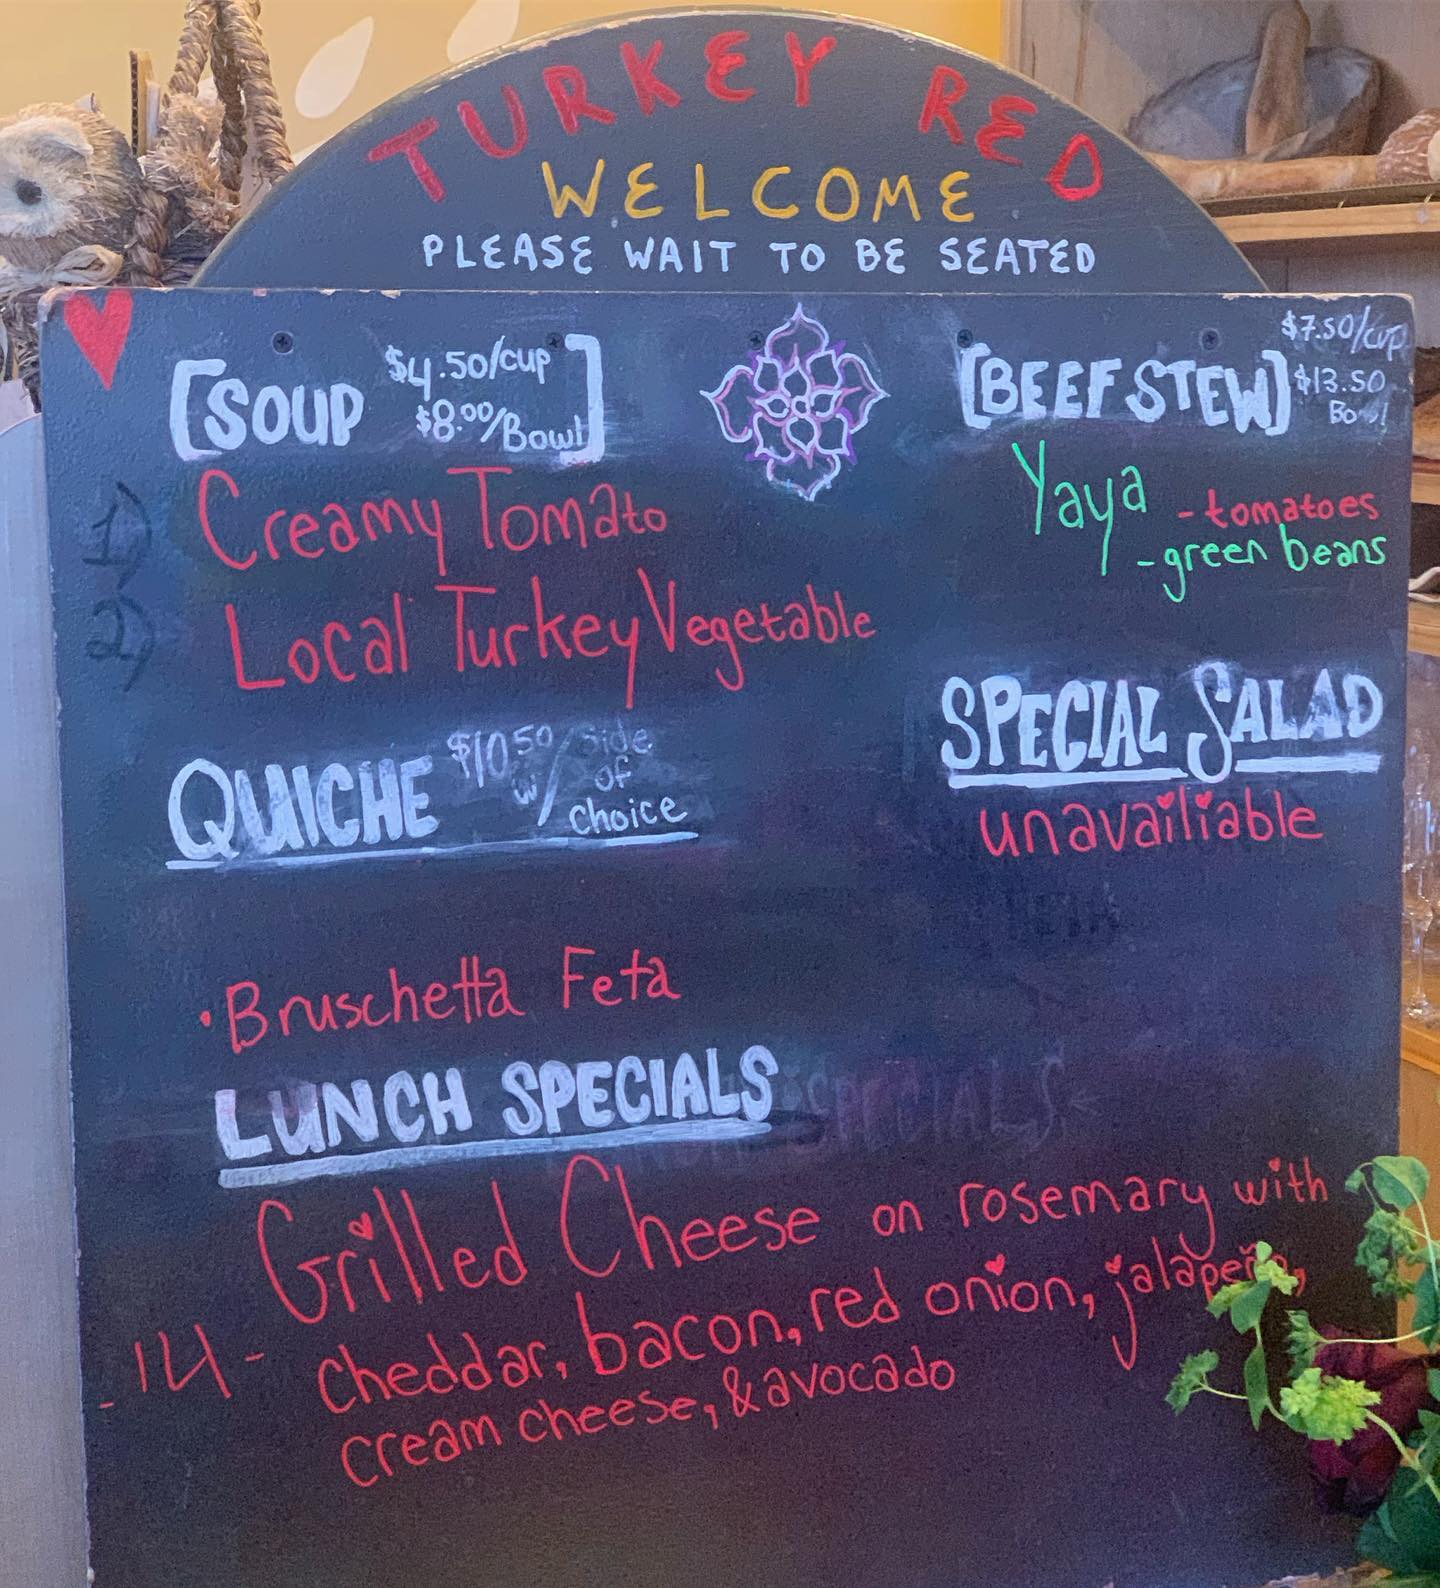 TURKEY RED
WELCOME
PLEASE WAIT TO BE SEATED
[SOUP $4.50/cup $8.00/Bowl]
1) Creamy Tomato
2) Local Turkey Vegetable
QUICHE $10.50 w/ Side of choice
• Bruschetta Feta
[BEEF STEW] $7.50/cup $13.50 Bowl
Yaya - tomatoes
- green beans
SPECIAL SALAD
unavailiable
LUNCH SPECIALS
Grilled Cheese on rosemary with
- 14 - cheddar, bacon, red onion, jalapeño,
cream cheese, & avocado